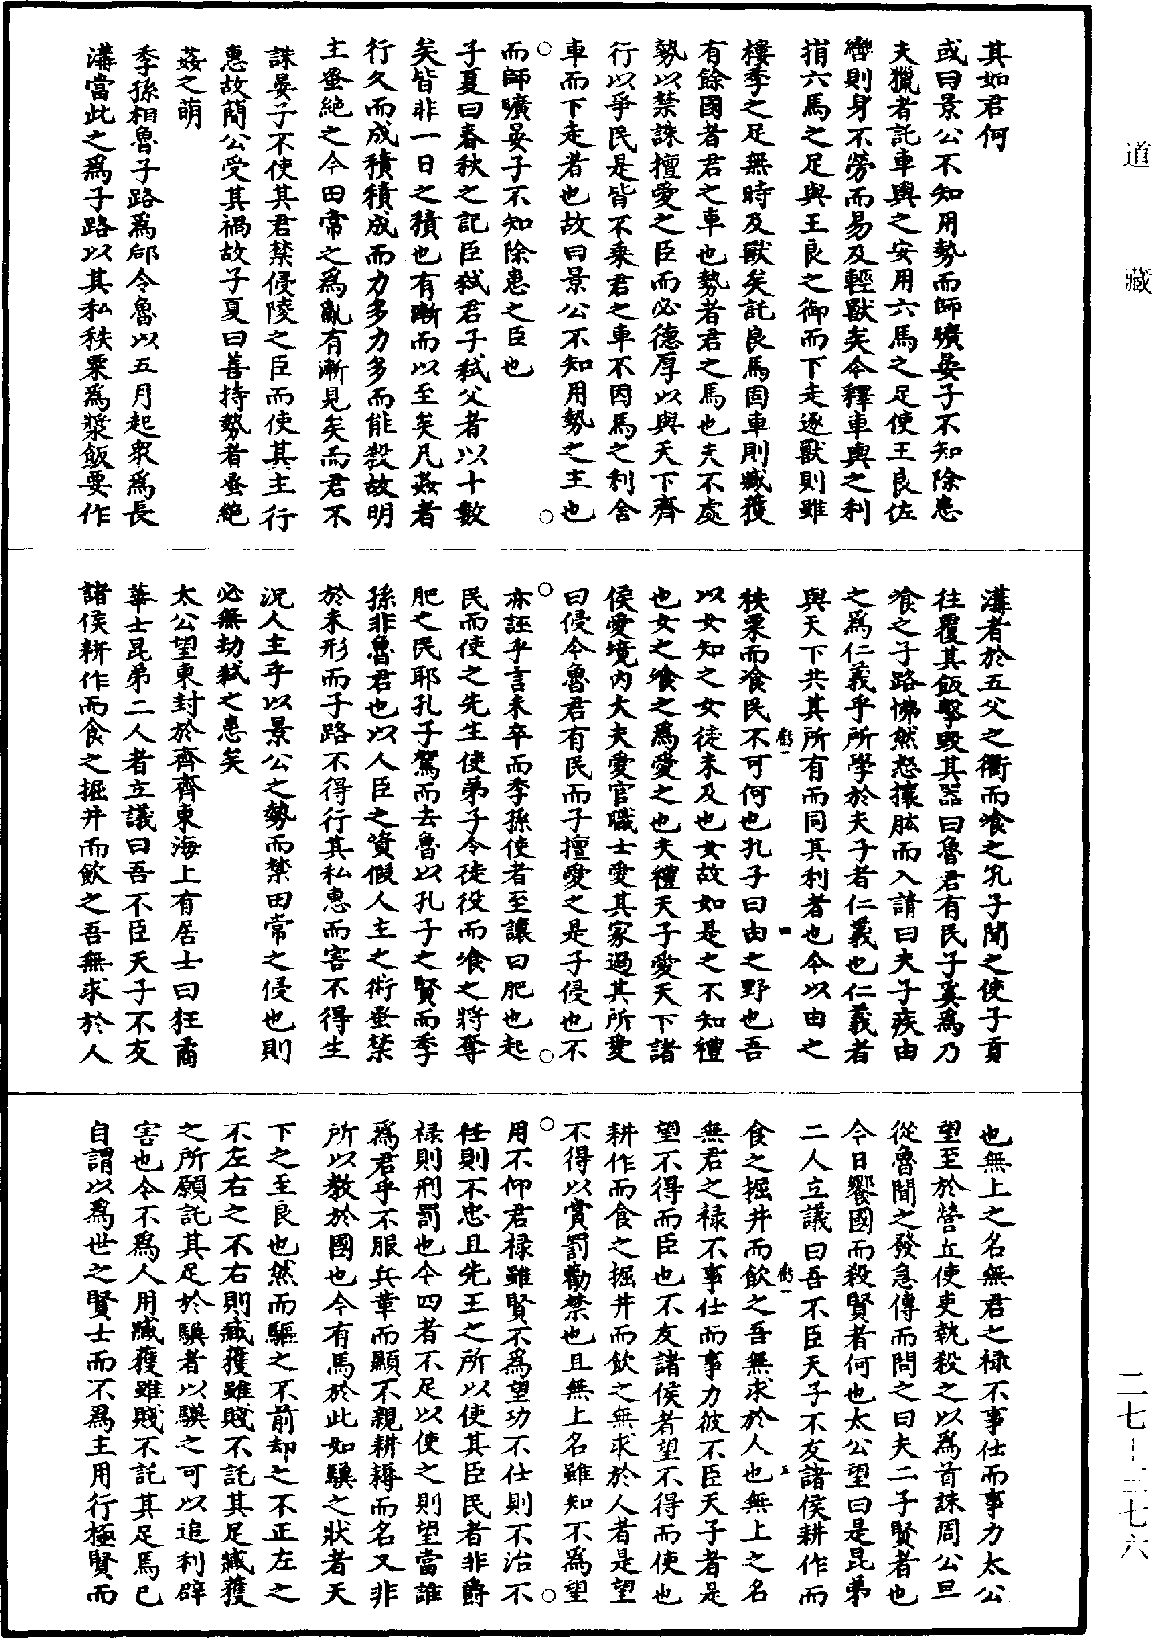 其如君何
或曰景公不知用勢而師曠晏子不知除患
夫獵者託車輿之安用六馬之足使王良佐
轡則身不勞而易及輕獸矣今釋車輿之利
捐六馬之足與王良之御而下走逐獸則雖
樓季之足無時及獸矣託良馬固車則臧獲
有餘國者君之車也勢者君之馬也夫不處
勢以禁誅擅愛之臣而必德厚以與天下齊
行以爭民是皆不乘君之車不因馬之利舍
車而下走者也故曰景公不知用勢之主也
而師曠晏子不知除患之臣也
子夏曰春秋之記臣弒君子弒父者以十數
矣皆非一日之積也有漸而以至矣凡姦者
行久而成積積成而力多力多而能殺故明
主蚤絕之今田常之為亂有漸見矣而君不
誅晏子不使其君禁侵陵之臣而使其主行
惠故簡公受其禍故子夏曰善持勢者蚤絕
姦之萌
季孫相魯子路為郈令魯以五月起衆為長
溝當此之為子路以其私秩粟為漿飯要作
溝者於五父之衢而飡之孔子聞之使子貢
往覆其飯擊毀其器曰魯君有民子奚為乃
飡之子路怫然怒攘肱而入請曰夫子疾由
之為仁義乎所學於夫子者仁義也仁義者
與天下共其所有而同其利者也今以由之
秩粟而飡民不可何也孔子曰由之野也吾
以女知之女徒未及也女故如是之不知禮
也女之飡之為愛之也夫禮天子愛天下諸
侯愛境內大夫愛官職士愛其家過其所愛
曰侵今魯君有民而子擅愛之是子侵也不
亦誣乎言未卒而季孫使者至讓曰肥也起
民而使之先生使弟子令徒役而飡之將奪
肥之民耶孔子駕而去魯以孔子之賢而季
孫非魯君也以人臣之資假人主之術蚤禁
於未形而子路不得行其私惠而害不得生
況人主乎以景公之勢而禁田常之侵也則
必無劫弒之患矣
太公望東封於齊齊東海上有居士曰狂矞
華士昆弟二人者立議曰吾不臣天子不友
諸侯耕作而食之掘井而飲之吾無求於人
也無上之名無君之祿不事仕而事力太公
望至於營丘使吏執殺之以為首誅周公旦
從魯聞之發急傳而問之曰夫二子賢者也
今日饗國而殺賢者何也太公望曰是昆弟
二人立議曰吾不臣天子不友諸侯耕作而
食之掘井而飲之吾無求於人也無上之名
無君之祿不事仕而事力彼不臣天子者是
望不得而臣也不友諸侯者望不得而使也
耕作而食之掘井而飲之無求於人者是望
不得以賞罰勸禁也且無上名雖知不為望
用不仰君祿雖賢不為望功不仕則不治不
任則不忠且先王之所以使其臣民者非爵
祿則刑罰也今四者不足以使之則望當誰
為君乎不服兵革而顯不親耕耨而名又非
所以教於國也今有馬於此如驥之狀者天
下之至良也然而驅之不前却之不正左之
不左右之不右則臧獲雖賤不託其足臧獲
之所願託其足於驥者以驥之可以追利辟
害也今不為人用臧獲雖賤不託其足馬已
自謂以為世之賢士而不為主用行極賢而
道藏
二七-三七六